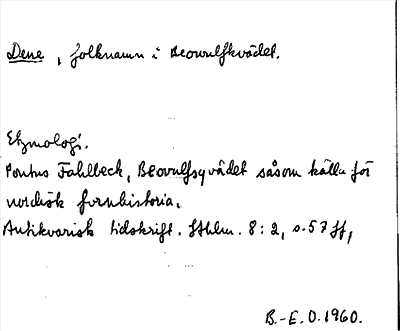 Dene, folknamn i Beowulfkvädet.
Etymologi.
Pontus Fahlbeck, Beovulfsqvädet såsom källa för
nordisk fornhistoria.
Antikvarisk tidskrift. Sthlm. 8:2, s. 57 ff,
B.-E. O. 1960.